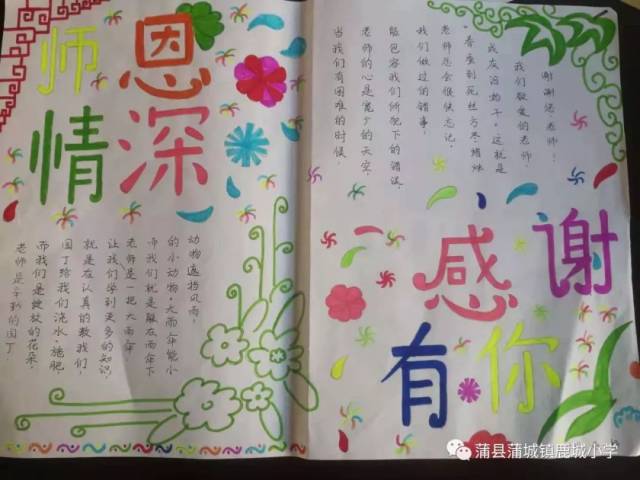 师恩
情深
老师是辛勤的园丁，
而我们是绽放的花朵，
园丁给我们浇水，施肥
就是在认真的教我们，
让我们学到更多的知识，
老师是一把大雨伞
而我们就是躲在雨伞下
的小动物。大雨伞能小
动物遮挡风雨，
当我们有困难的时候，
老师的心是宽广的天空，
能包容我们所犯下的错误，
我们做过的错事，
老师总会很快忘记，
“春蚕到死丝方尽，蜡炬
成灰泪始干”，这就是
我们敬爱的老师，
谢谢您，老师！
感谢
有你
蒲县蒲城镇鹿城小学